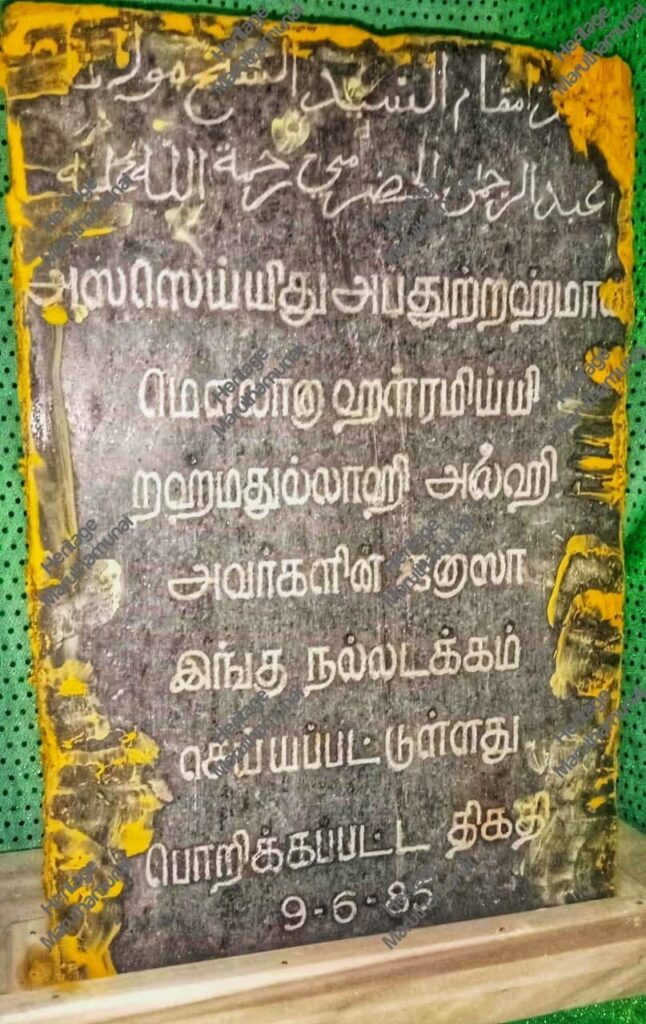 مقام السيد الشيخ مولانا
عبد الرحمن الحضرمي رحمة الله عليه
அஸ்ஸெய்யிது அப்துற்றஹ்மான்
மௌலானா ஹள்ரமிய்யி
றஹ்மதுல்லாஹி அலீஹி
அவர்களின் ஜனாஸா
இங்கு நல்லடக்கம்
செய்யப்பட்டுள்ளது
பொறிக்கப்பட்ட திகதி
9-6-85
Heritage
Maruthamunai